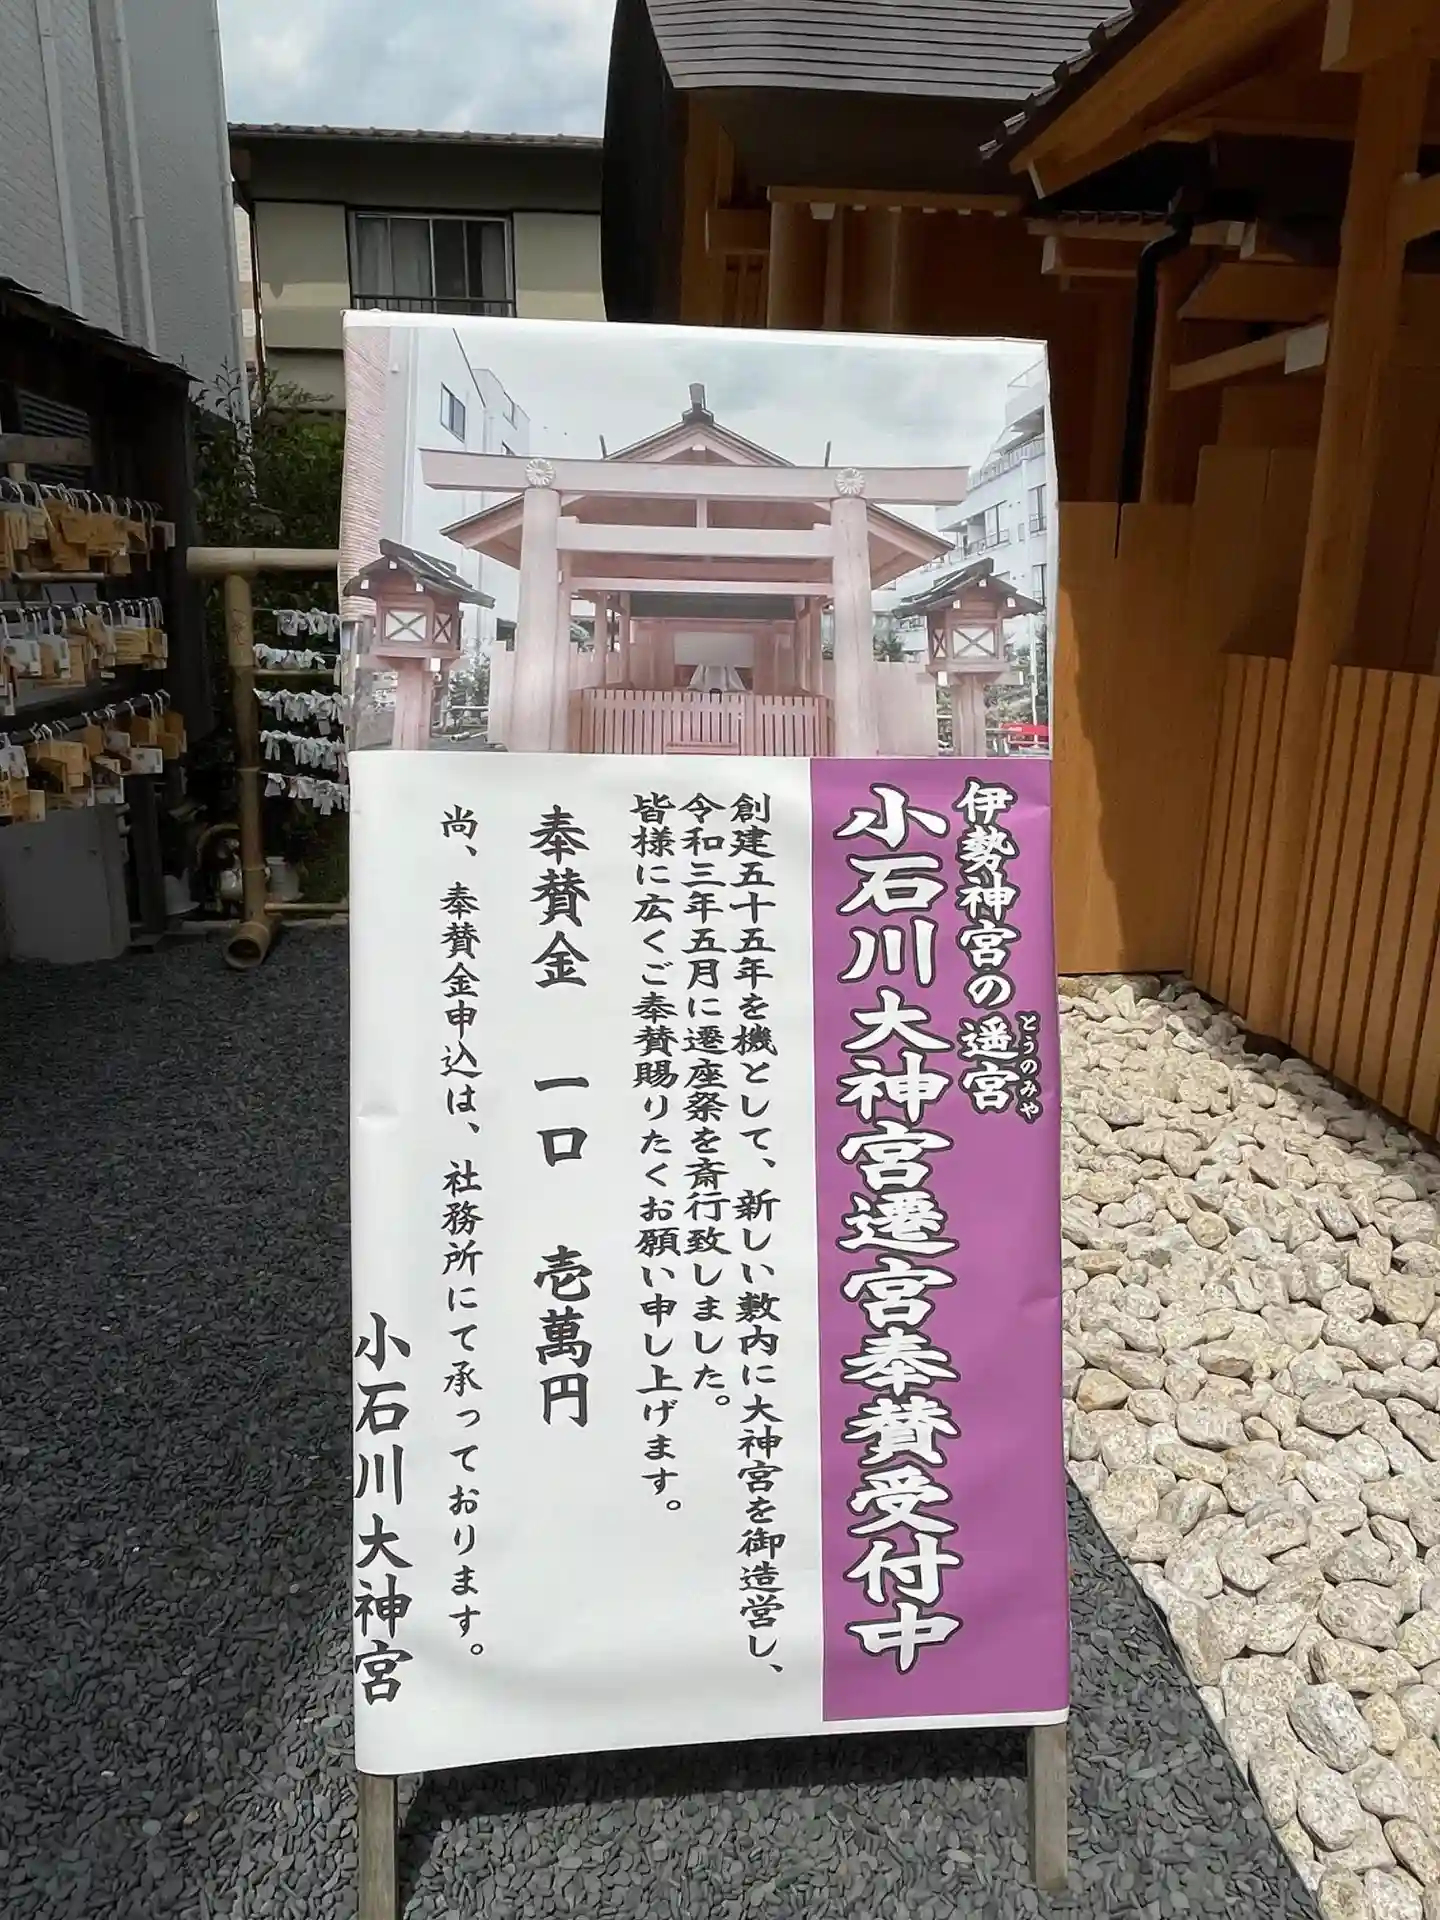 伊勢神宮の遥宮
とうのみや
小石川大神宮遷宮奉賛受付中
創建五十五年を機として、新しい敷内に大神宮を御造営し、
令和三年五月に遷座祭を斎行致しました。
皆様に広くご奉賛賜りたくお願い申し上げます。
奉賛金 一口 壱萬円
尚、奉賛金申込は、社務所にて承っております。
小石川大神宮